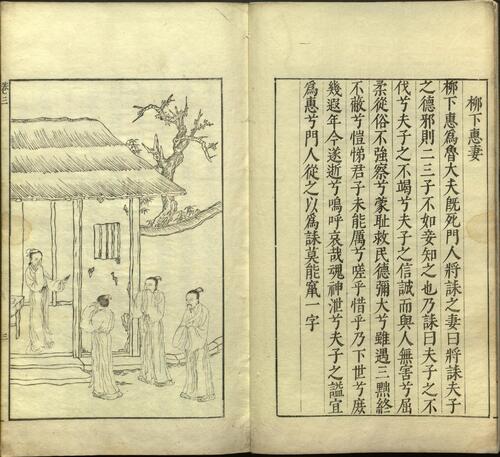 柳下惠妻
柳下惠爲魯大夫既死門人將誄之妻曰將誄夫子
之德邪則二三子不如妾知之也乃誄曰夫子之不
伐兮夫子之不竭兮夫子之信誠而與人無害兮屈
柔從俗不強察兮蒙耻救民德彌大兮雖遇三黜終
不蔽兮愷悌君子未能厲兮嗟乎惜乎乃下世兮庶
幾遐年今遂逝兮嗚呼哀哉魂神泄兮夫子之謚宜
爲惠兮門人從之以爲誄莫能竄一字
卷三